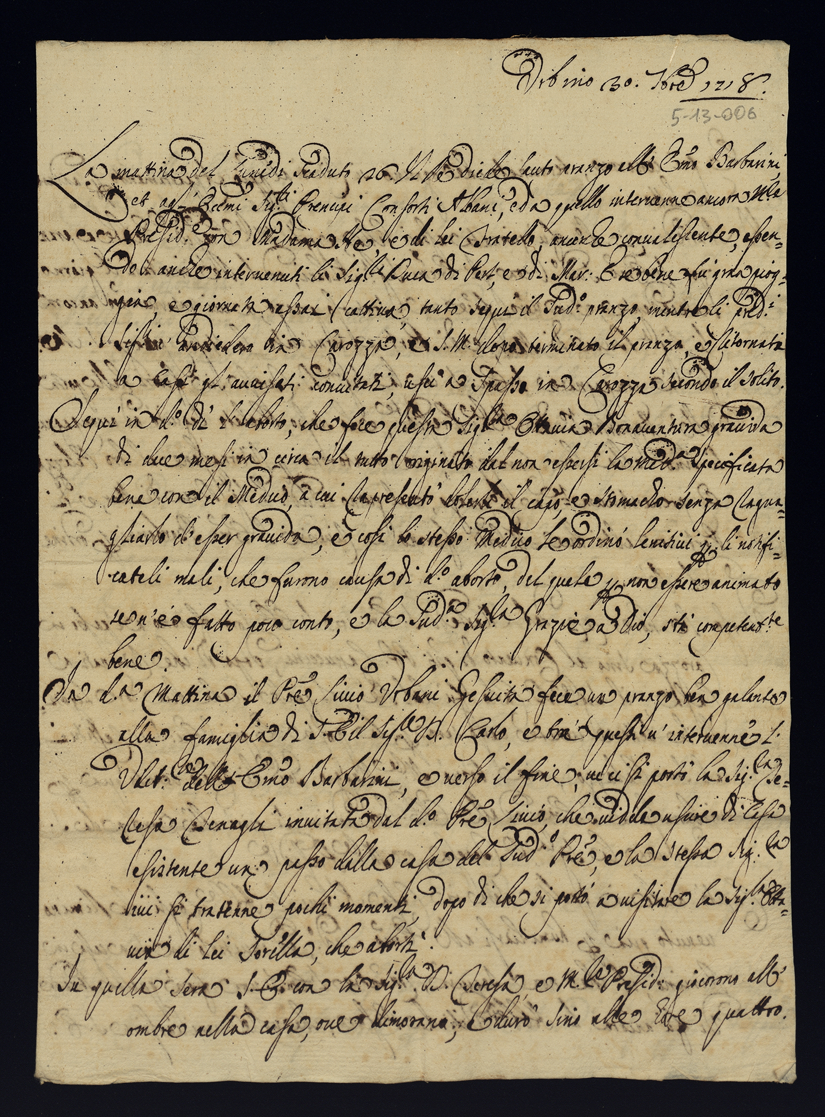 Urbino 30. 7bre 1718.
5-13-006
La mattina del Lunedì caduto 26 S. M. diede lauto pranzo all' Emo Barbarini,
et agl' Eccmi Sigri Prencipi Consorti Albani, ed a quello intervenne ancora Mla
Presid: con Madama e di lei Fratello, ancor convalescente, essen-
dovi anche intervenuti li Sigri Duca di Pert, e di Mar: e bene fù gran piog-
gia, e giornata assai cattiva, tanto seguì il sudo pranzo mentre li predi
Sigri andiedero in Carozza, e S. M. dopo terminato il pranzo, e ritornati
a Casa gl' avvisati convitati, uscì a spasso in Carozza secondo il solito.
Seguì in do dì l' aborto, che fece questa Sigra Ottavia Bonaventura gravida
di due mesi in circa il tutto originato dal non essersi la meda specificata
bene con il Medico, a cui rapresentò dolerle il capo e stomacho senza ragua-
gliarlo d' esser gravida, e così lo stesso Medico le ordinò lenitivi p li notifi-
cateli mali, che furono causa di do aborto, del quale p non essere animato
se n' è fatto poco conto, e la Suda Sigra Grazie a Dio, stà competentte
bene.
In da Mattina il Pre Livio Urbani Gesuita fece un pranzo ben galante
alla famiglia di S. E il Sigre D. Carlo, e trà questi v' intervenne l'
Udit: dell' Emo Barbarini, e verso il fine, vi ci si portò la Siga Te-
resa Benagli invitata dal do Pre Livio, che vidde uscire di Casa
esistente un passo dalla casa del Sudo Pre, e la stessa Siga
ivi si trattenne pochi momenti, dopo di che si portò a visitare la Siga Otta-
via di lei Sorella, che abortì.
In quella sera S. E. con la Siga D. Teresa, e Mla Presid: giocorono all'
ombre nella casa, ove dimorano, e durò sino alle Ore quattro.